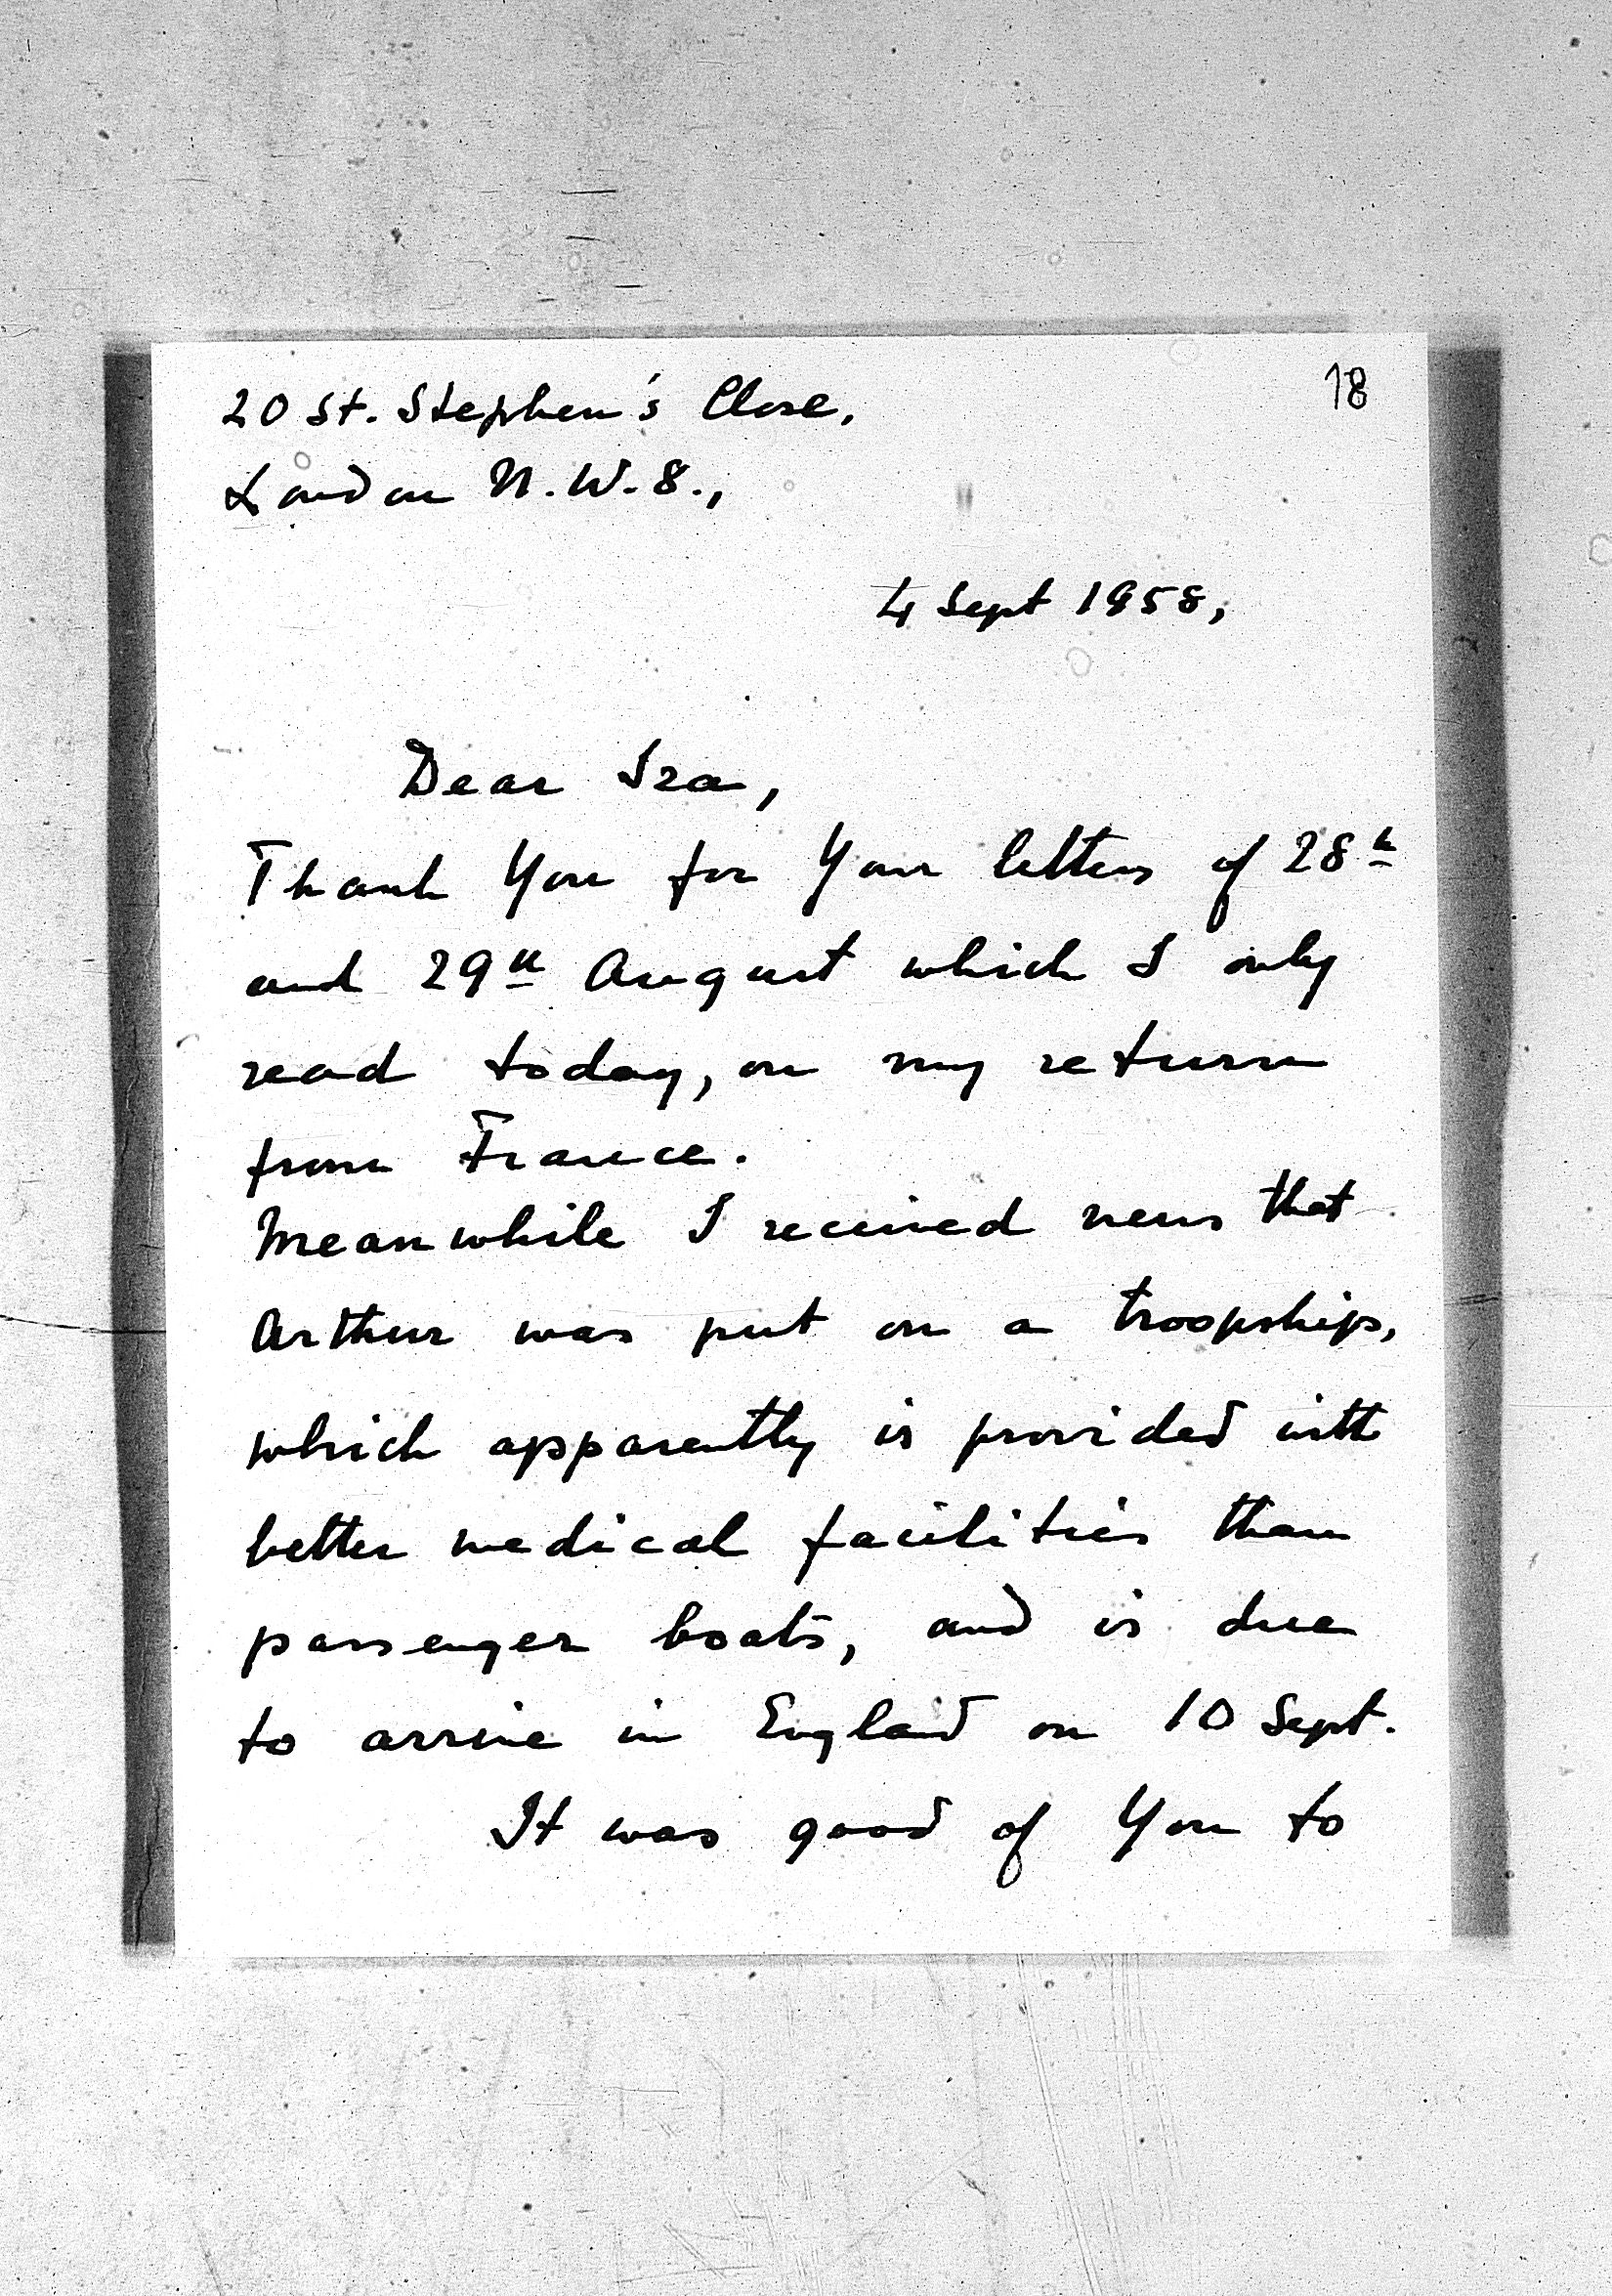 18
20 St. Stephen's Close,
London N.W.8.,
4 Sept 1958,
Dear Iza,
Thank You for Your letters of 28th
and 29th August which I only
read today, on my return
from France.
Meanwhile I received news that
Arthur was put on a troopship,
which apparently is provided with
better medical facilities than
passenger boats, and is due
to arrive in England on 10 Sept.
It was good of You to